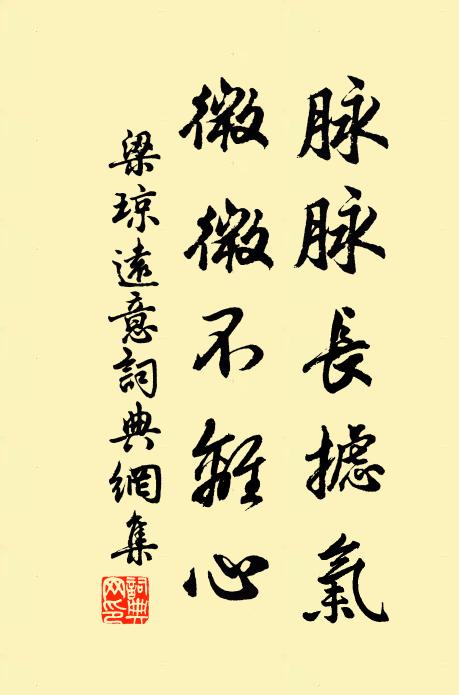 脉脉長摅氣
微微不離心
梁琼遠意詞典網集
詞典网印